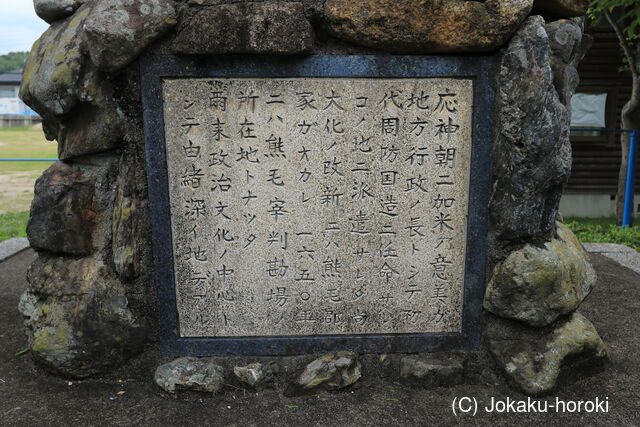 応神朝ニ加米乃意美ガ
地方行政ノ長トシテ初
代周防国造ニ任命サレ
コノ地ニ派遣サレタ
大化ノ改新ニハ熊毛郡
家ガオカレ一六五〇年
ニハ熊毛宰判勘場ノ
所在地トナツタ
爾来政治文化ノ中心ト
シテ由緒深イ地デアル
(C) Jokaku-horoki